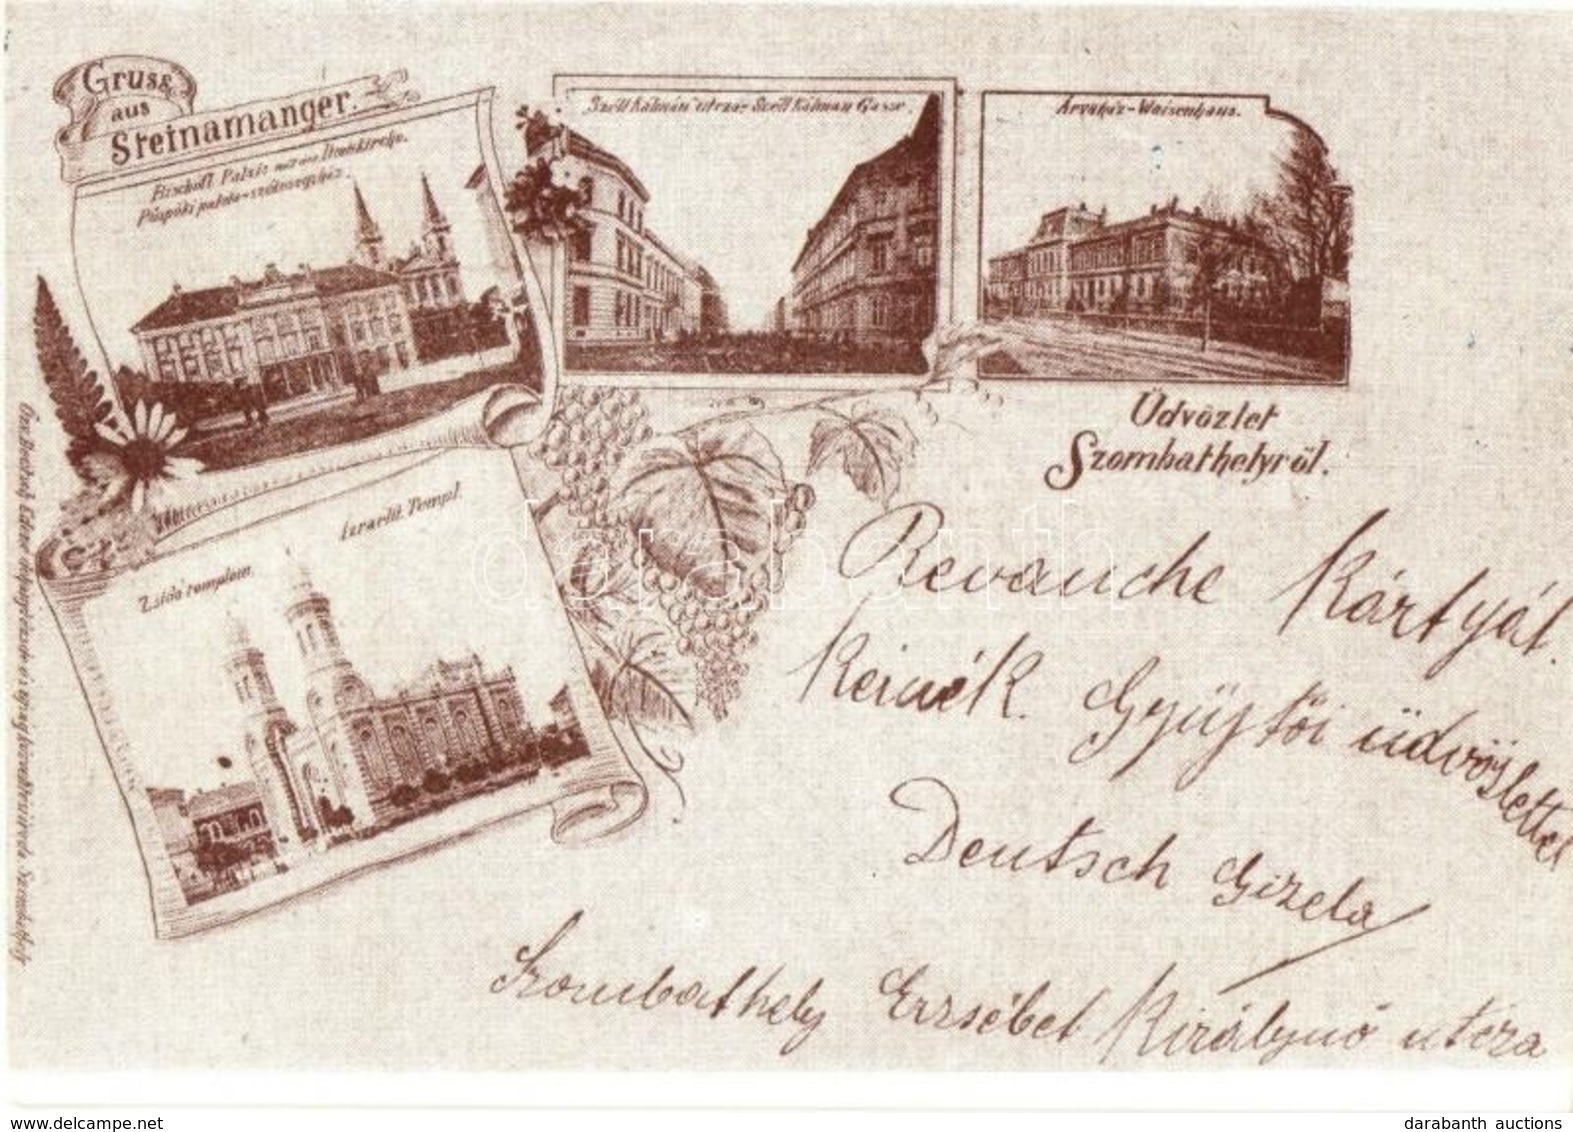 Gruss
aus
Steinamanger.
Bischöfl. Palais mit der Domkirche.
Püspöki palota-székesegyház.
Széll Kálmán utcza- Széll Kálmán Gasse.
Árvaház-Waisenhaus.
Üdvözlet
Szombathelyről.
Izraelit. Templ.
Zsidó templom.
Revanche Kártyát
Kérnék. Gyüjtői üdvözlettel
Deutsch Gizela
Szombathely Erzsébet Királynő utcza
Szombathely.
darabanth
Delcampe.net
darabanth auctions